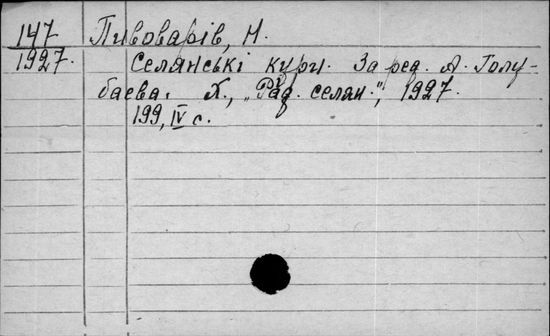 147 Пивоварів, Н.
1927. Селянські кури. За ред. А. Голу-
баева. Х., "Рад. селян.", 1927.
199, IV с.